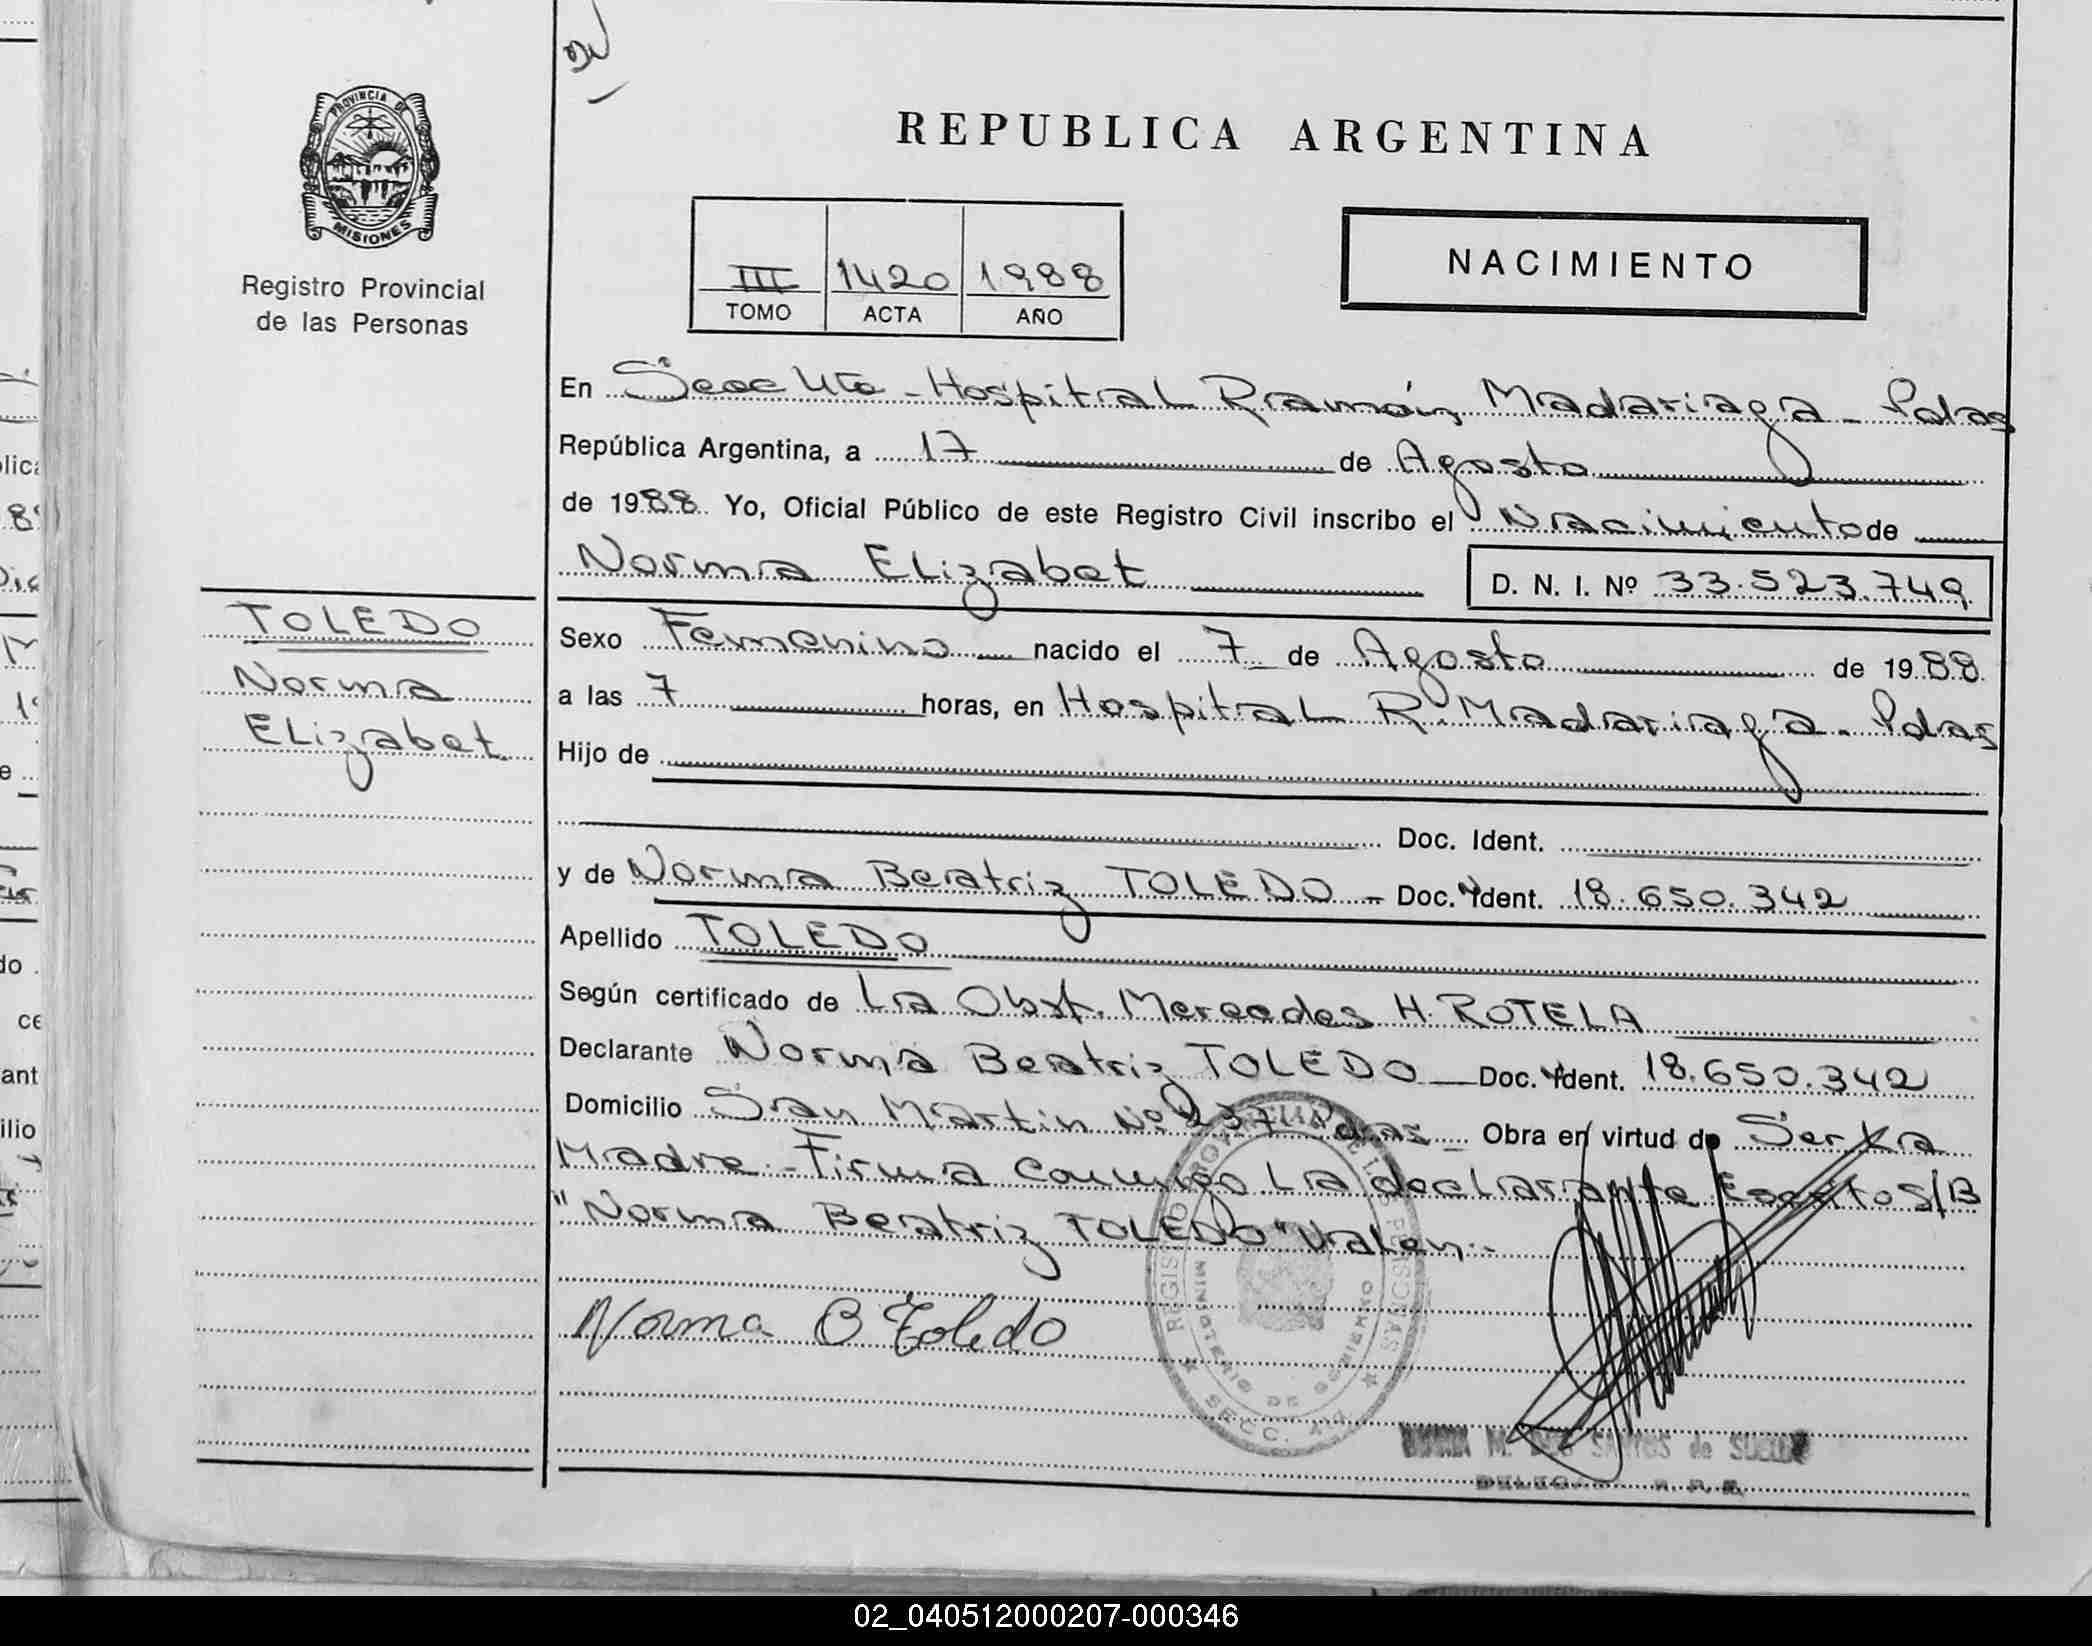 PROVINCIA DE
MISIONES
Registro Provincial
de las Personas
REPUBLICA ARGENTINA
III 1420 1988
TOMO ACTA AÑO
NACIMIENTO
En Hospital Ramón Madariaga - Pdas
República Argentina, a 17 de Agosto
de 1988 Yo, Oficial Público de este Registro Civil inscribo el Nacimiento de
Norma Elizabet
D. N. I. Nº 33.523.749
TOLEDO
Norma
Elizabet
Sexo Femenino nacido el 7 de Agosto de 1988
a las 7 horas, en Hospital R. Madariaga. Pdas
Hijo de
Doc. Ident.
y de Norma Beatriz TOLEDO - Doc. Ident. 18.650.342
Apellido TOLEDO
Según certificado de La Obst. Mercedes H. ROTELA
Declarante Norma Beatriz TOLEDO Doc. Ident. 18.650.342
Domicilio San Martin Nº 237 Pdas Obra en virtud de Ser La
Madre - Firma conmigo La declarante Escritos/B
"Norma Beatriz TOLEDO" Valen.-
Norma B Toledo
MINISTERIO DE GOBIERNO
SECC.
SANTOS de
02_040512000207-000346